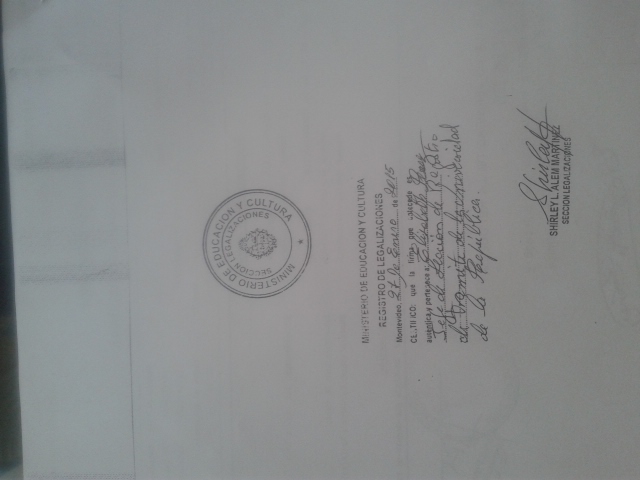 MINISTERIO DE EDUCACION Y CULTURA
SECCION LEGALIZACIONES
MINISTERIO DE EDUCACION Y CULTURA
REGISTRO DE LEGALIZACIONES
Montevideo, 27 de Enero de 2015
CERTIFICO: que la firma que antecede es
auténtica y pertenece a Elizabeth
Jefe de Sección de
de Trámite de la Universidad
de la República.
SHIRLEY L. ALEM MARTINEZ
SECCION LEGALIZACIONES